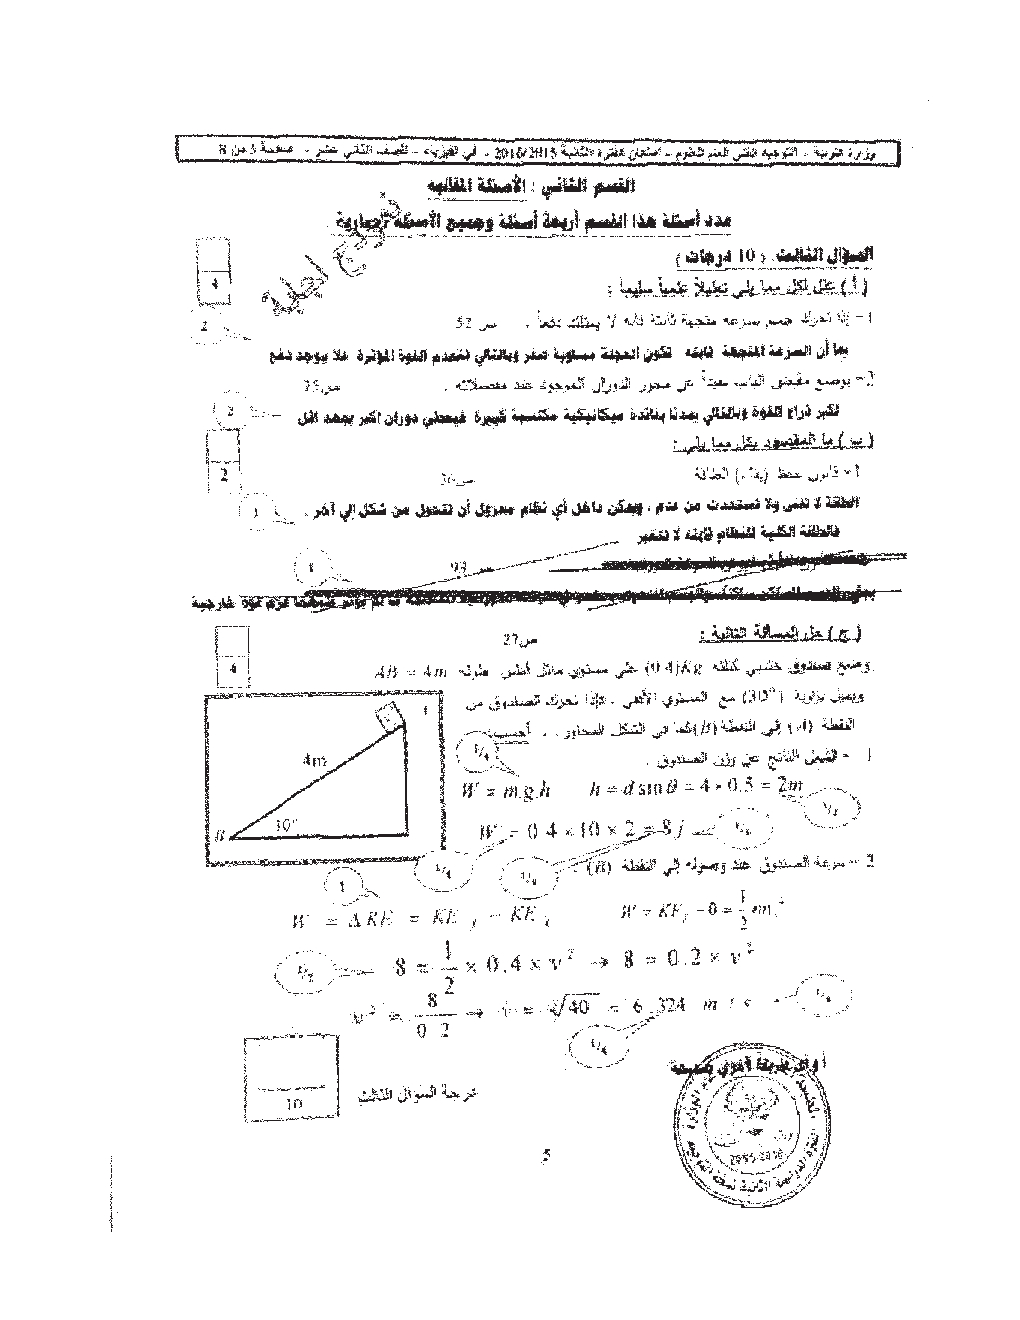 وزارة التربية - التوجيه الفني العام للعلوم - امتحان الفترة الثانية 2016/2015 - في الفيزياء - للصف الثاني عشر - صفحة 5 من 8
القسم الثاني : الأسئلة المقالية
عدد أسئلة هذا القسم أربعة أسئلة وجميع الأسئلة إجبارية
نموذج إجابة
السؤال الثالث ( 10 درجات )
4
( أ ) علل لكل مما يلي تعليلاً علمياً سليماً :
1- إذا تحرك جسم بسرعة متجهة ثابتة فإنه لا يمتلك دفعاً . ص 52
2
بما أن السرعة المتجهة ثابتة تكون العجلة مساوية صفر وبالتالي تنعدم القوة المؤثرة فلا يوجد دفع
2- يوضع مقبض الباب بعيداً عن محور الدوران الموجود عند مفصلاته .
2
لكبر ذراع القوة وبالتالي يمدنا بفائدة ميكانيكية مكتسبة كبيرة فيعطي دوران أكبر بجهد أقل
( ب ) ما المقصود بكل مما يلي :
2
1- قانون حفظ (بقاء) الطاقة
الطاقة لا تفنى ولا تستحدث من عدم ، ويمكن داخل أي نظام معزول أن تتحول من شكل إلى آخر .
1
فالطاقة الكلية للنظام ثابتة لا تتغير
1
( ج ) حل المسألة التالية : ص27
4
وضع صندوق خشبي كتلته (0.4)Kg على مستوي مائل أملس طوله AB = 4m
ويميل بزاوية (30°) مع المستوي الأفقي ، فإذا تحرك الصندوق من
النقطة (A) إلى النقطة (B) كما في الشكل المجاور . أحسب :
4m
B
1 - الشغل الناتج عن وزن الصندوق .
W = m.g.h h = d sin θ = 4 × 0.5 = 2m
W = 0.4 × 10 × 2 = 8 j
2 - سرعة الصندوق عند وصوله إلى النقطة (B) .
1
W = ΔKE = KE f − KE i W = KE f − 0 = 1/2 mv²
8 = 1/2 × 0.4 × v² → 8 = 0.2 × v²
v² = 8/0.2 → v = √40 = 6.324 m / s
أو أي طريقة أخرى صحيحة
10
درجة السؤال الثالث
5